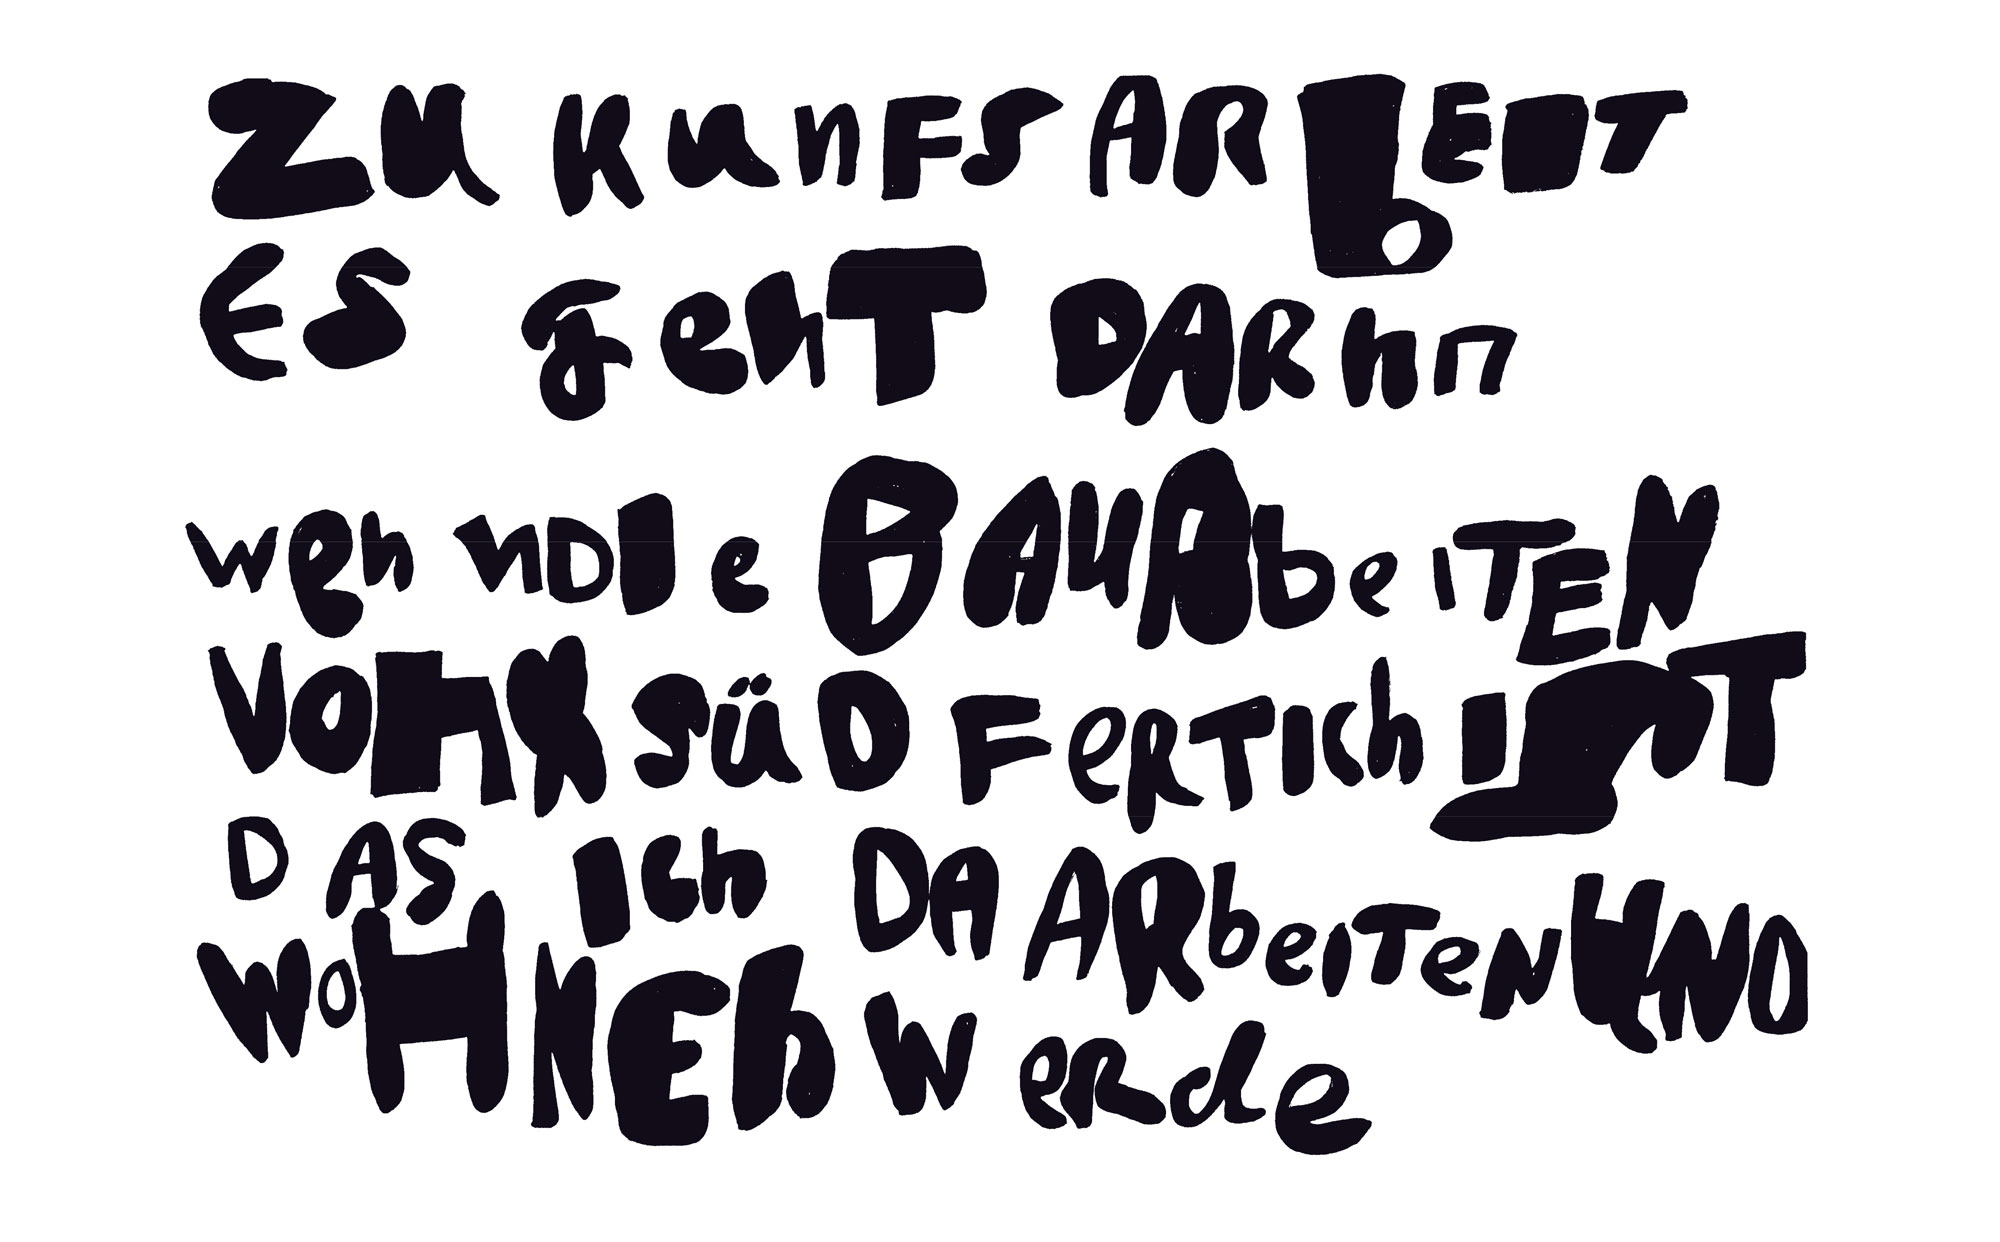 ZU KUNFS ARBEIT
ES gehT DARhn
weh nDIe BAUAbeITEN
VOHR SÜD FeRTICh IST
DAS ICh DA ARbeITeN UND
WOHNEh WeRde